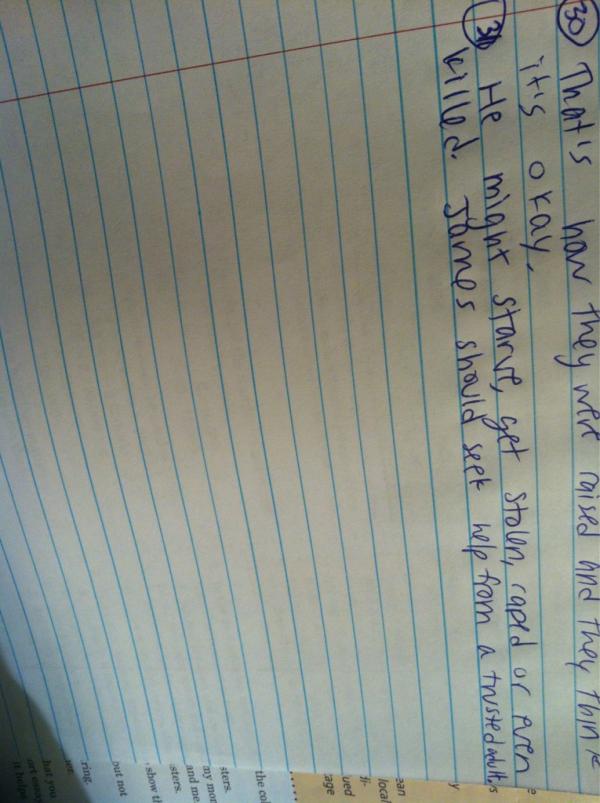 30 That's how they were raised and they think
it's okay.
31 He might starve, get stolen, raped or even
killed. James should seek help from a trusted adult/s
ean
local
fi-
ued
age
y
e
the col
sters.
my mor
and me
sters.
, show th
out not
ring.
her
hat you
ort essay
it helps